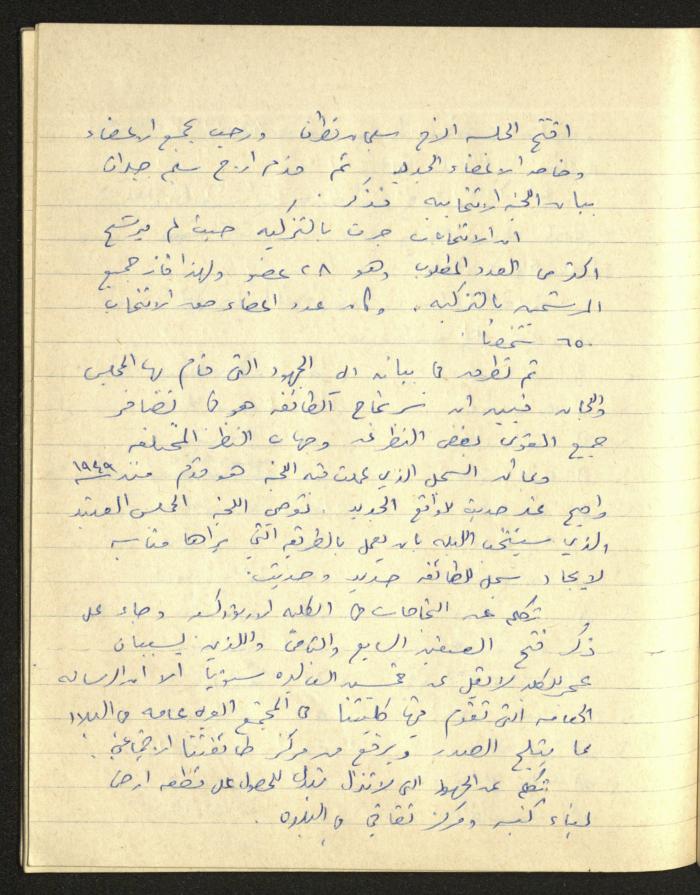 افتتح الجلسه الاخ سليمان قطران ورحب بجميع الاعضاء
وخاصه الاعضاء الجدد ثم قدم الاخ سليم جبران
بيان اللجنه الانتخابيه فذكر :
ان الانتخابات جرت بالتزكيه حيث لم يرشح
اكثر من العدد المطلوب وهو ٢٨ عضو ولهذا فاز جميع
المرشحين بالتزكيه . وكان عدد اعضاء حق الانتخاب
٦٥٠ شخصاً .
ثم تطرق في بيانه الى الجهود التي قام بها المجلس
واللجان فبين ان سر نجاح الطائفه هو في تضافر
جميع القوى بغض النظر عن وجهات النظر المختلفه
وبما ان السجل الذي عملت فيه اللجنة هو قديم منذ ١٩٤٩
واصبح غير حديث للواقع الجديد . توصي اللجنة المجلس العتيد
والذي سينتخب الليله بان يعمل بالطريقه التي يراها مناسبه
لايجاد سجل للطائفه جديد وحديث .
وتكلم عن النجاحات في الكليه الارثوذكسيه وجاء على
ذكر فتح الصفين السابع والثامن واللذين يسببان
عجز للكليه لا يقل عن خمسين الف ليره سنوياً الا ان الرساله
الهامه التي تقوم بها كليتنا في المجتمع العربي عامه في البلاد
مما يثلج الصدر ويرفع من مركز طائفتنا الاجتماعي .
وتكلم عن الجهود التي لا تزال تبذل للحصول على قطعه ارض
لبناء كنيسه ومركز ثقافي في البلده .